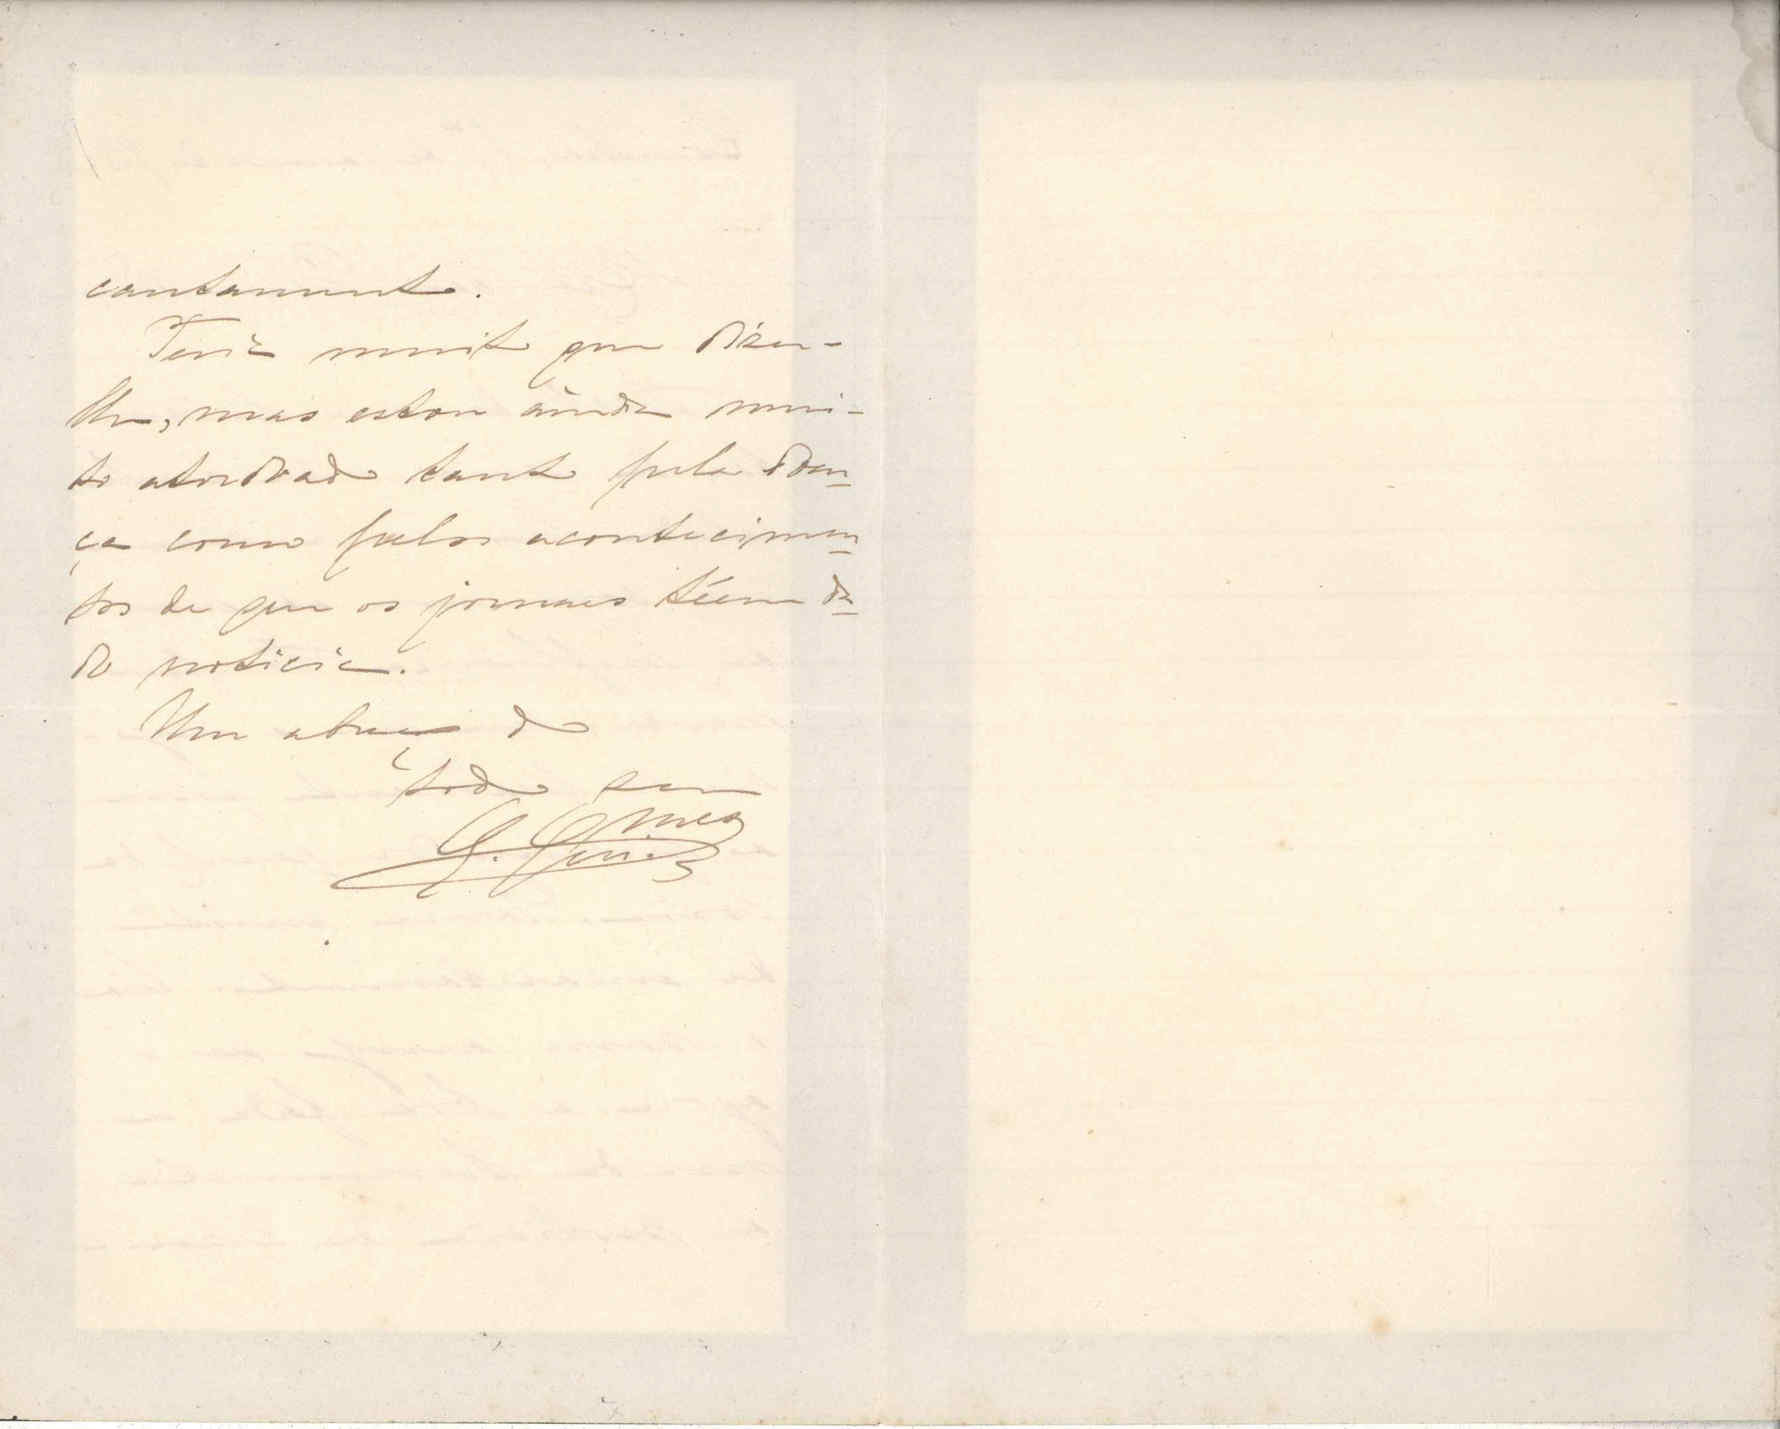 cantamente.
Teria muito que dizer-
lhe, mas estou ainda mui-
to atordoado tanto pela doen
ça como pelos acontecimen
tos de que os jornaes téem da
do noticia.
Um abraço do
todo seu